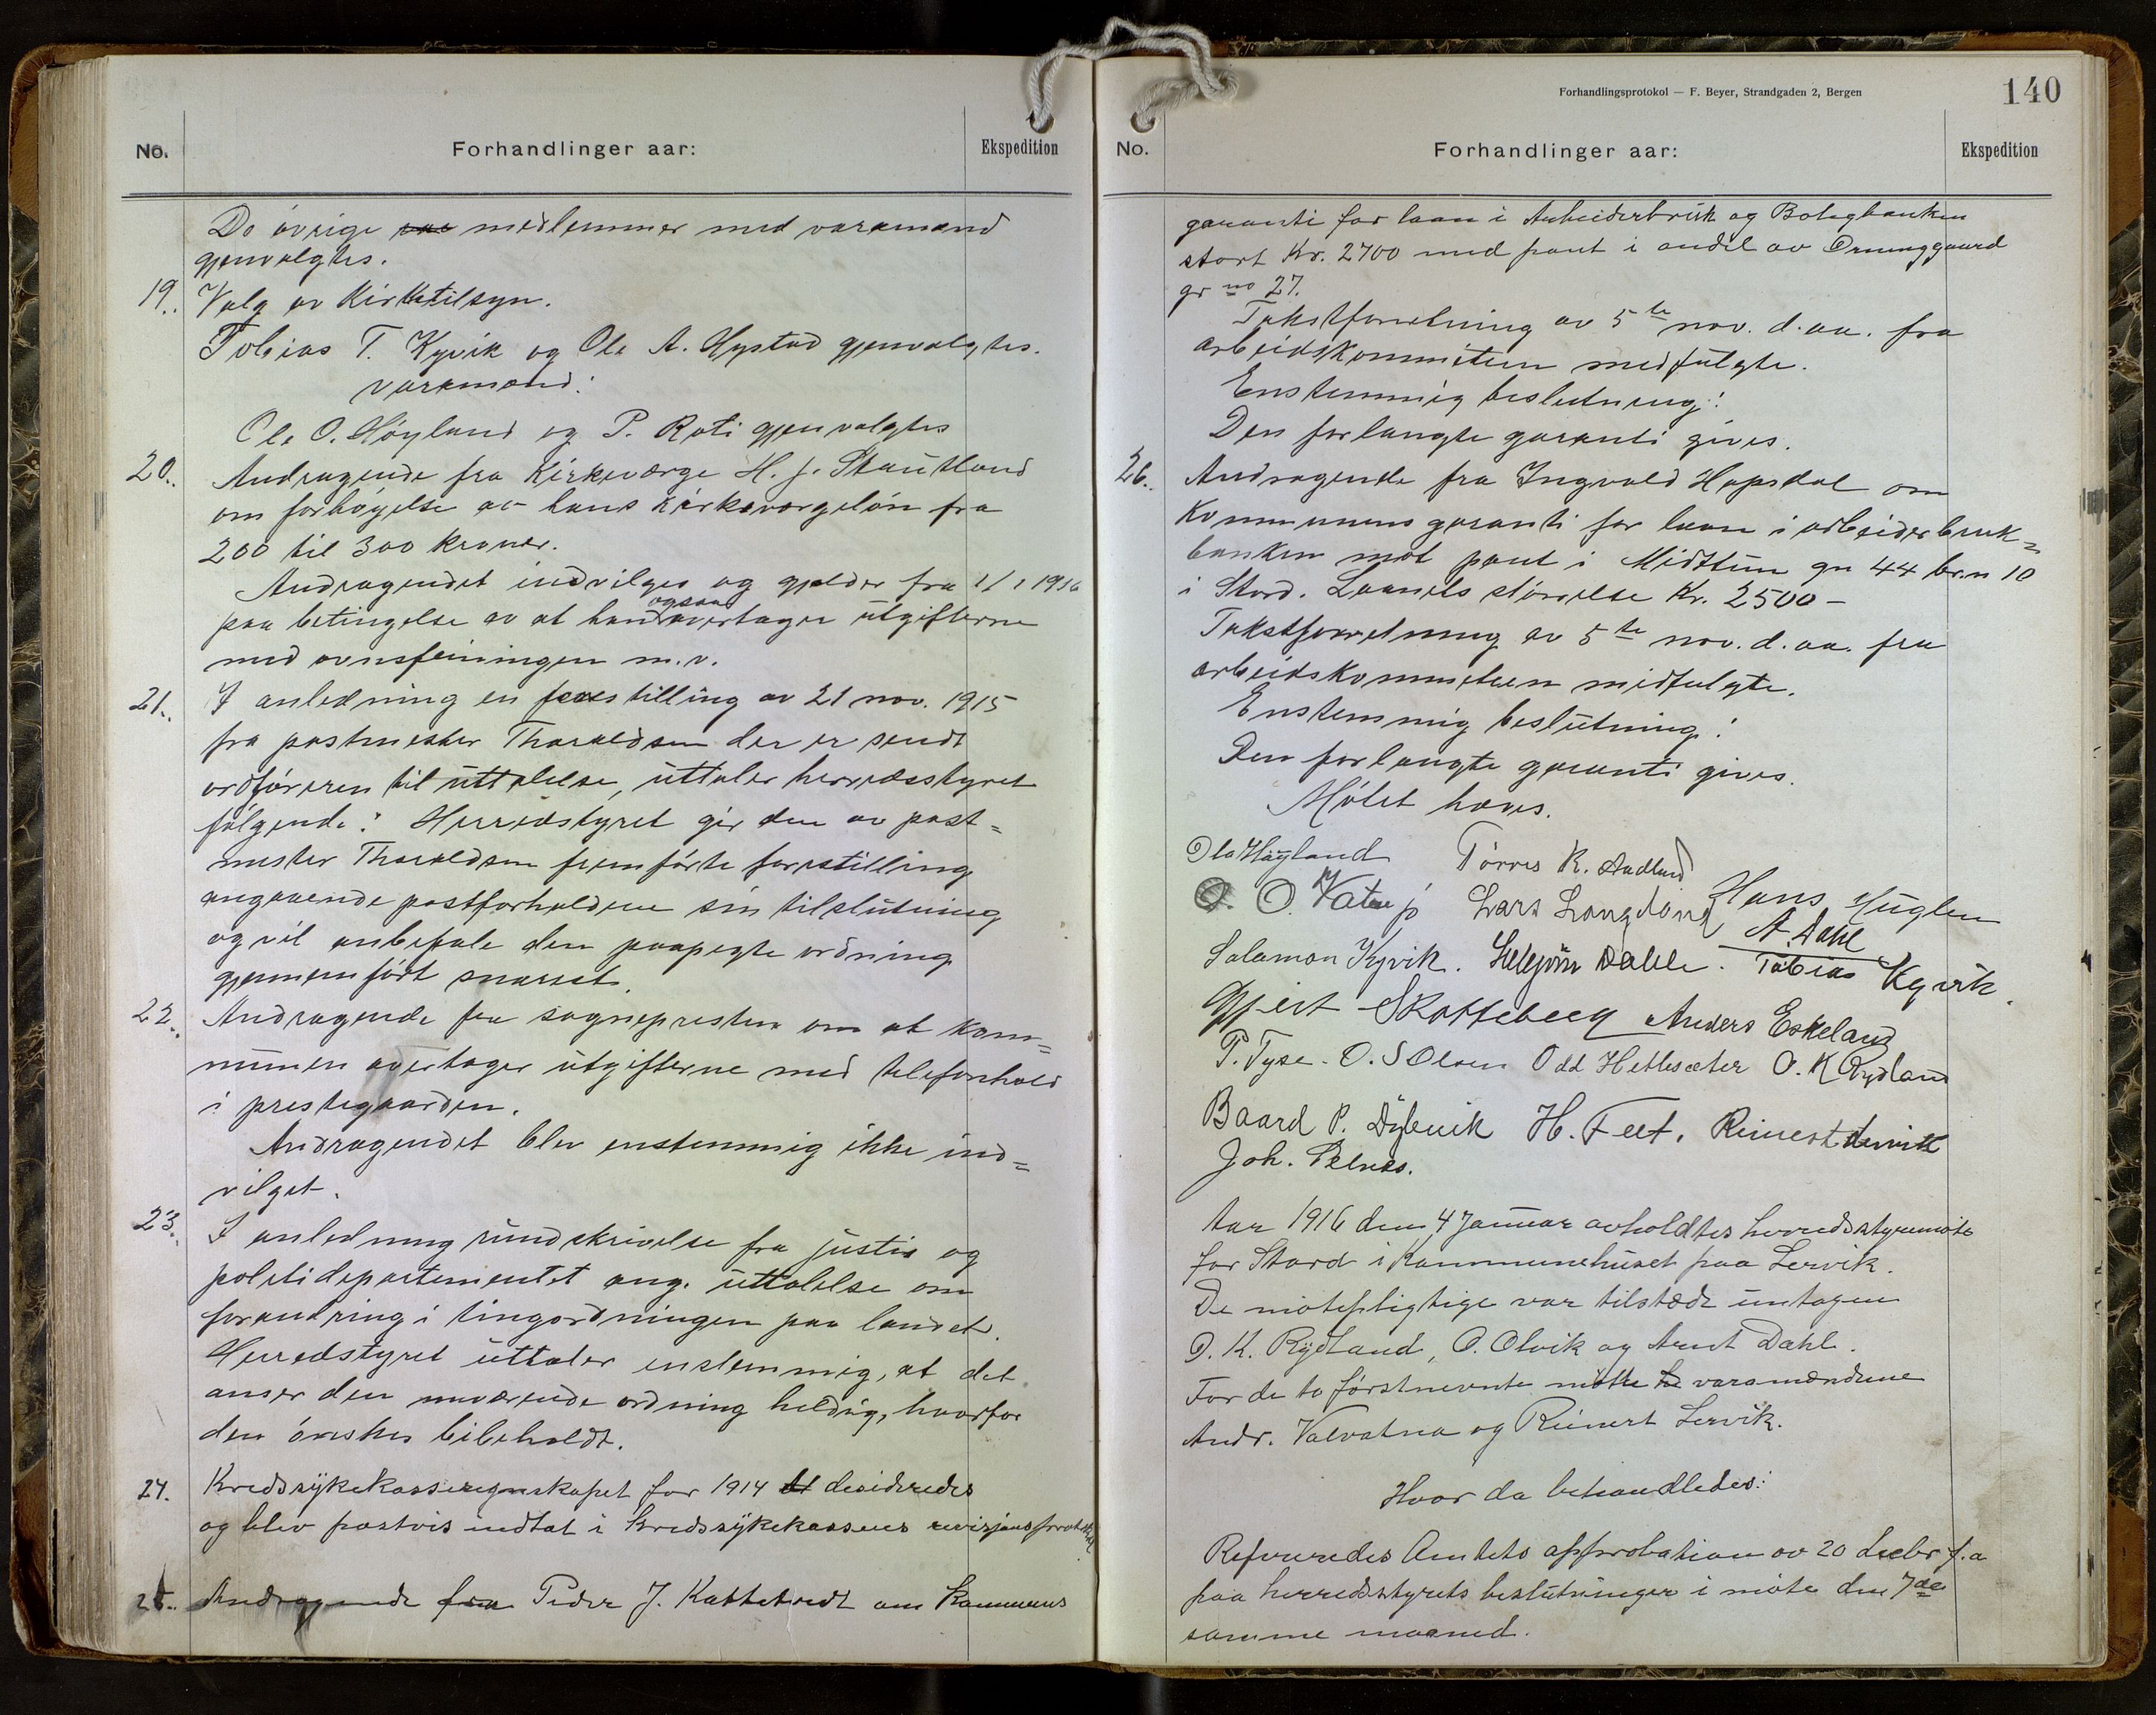 No. Forhandlinger aar: Ekspedition
De övrige medlemmer med varamænd
gjenvalgtes.
19. Valg av Kirketilsyn.
Tobias T. Kyvik og Ole A. Hystad gjenvalgtes.
varamænd:
Ole O. Höyland og P. Roti gjenvalgtes
20. Andragende fra Kirkeværge H. J. Stautland
om forhöyelse av hans kirkeværgelön fra
200 til 300 kroner.
Andragendet indvilges og gjælder fra 1/1 1916
paa betingelse av at han ogsaa overtager utgifterne
med ovnsfeiningen m.v.
21. I anledning en forestilling av 21 nov. 1915
fra postmester Thoraldsen der er sendt
ordföreren til uttalelse, uttaler herredsstyret
fölgende: Herredstyret gir den av post=
mester Thoraldsen fremförte forestilling
angaaende postforholdene sin tilslutning
og vil anbefale den paapegte ordning
gjennemfört snarest.
22. Andragende fra sognepresten om at kom=
munen overtager utgifterne med telefonhold
i prestegaarden.
Andragendet blev enstemmig ikke ind=
vilget.
23. I anledning rundskrivelse fra justis og
politidepartementet ang. uttalelse om
forandring i tingordningen paa landet.
Herredstyret uttaler enstemmig, at det
anser den nuværende ordning heldig, hvorfor
den önskes bibeholdt.
24. Kredssykekasseregnskapet for 1914 desideredes
og blev postvis indtat i kredssykekassens revisjonsprotokol
25. Andragende fra Peder J. Kattetvedt om Kommuns
Forhandlingsprotokol — F. Beyer, Strandgaden 2, Bergen
140
No. Forhandlinger aar: Ekspedition
garanti for laan i Arbeiderbruk og Boligbanken
stort Kr. 2700 med pant i andel av Orninggaard
gr no 27.
Takstforretning av 5te nov. d.aa. fra
arbeidskommiteen medfulgte.
Enstemmig beslutning:
Den forlangte garanti gives.
26. Andragende fra Ingvald Hopsdal om
Kommunens garanti for laan i arbeiderbruk=
banken mot pant i Midttun gn 44 br.n 10
i Stord. Laanets störrelse Kr. 2500 -
Takstforretning av 5te nov. d.aa. fra
arbeidskommiteen medfulgte.
Enstemmig beslutning:
Den forlangte garanti gives.
Mötet hæves.
Ola Höyland Törres K. Aadland
O. Vatne Lars Langeland Hans Huglen
A. Dahl
Salamon Kyvik. Dahle. Tobias Kyvik.
Gjert Skotteberg Anders Eskeland
P. Tyse. O. S Olsen Odd Hetlesæter O. K Rydland
Baard P. Dybvik H. Feet. Reinert Lervik
Joh. Selnes.
Aar 1916 den 4 Januar avholdtes herredsstyremöte
for Stord i Kommunehuset paa Lervik.
De mötepligtige var tilstede untagen
O. K. Rydland, O. Olvik og Arnt Dahl.
For de to förstnevnte mötte varamændene
Andr. Valvatna og Reinert Lervik.
Hvor da behandledes:
Refereredes Amtets approbation av 20 decbr f.a
paa herredsstyrets beslutninger i möte den 7de
samme maaned.